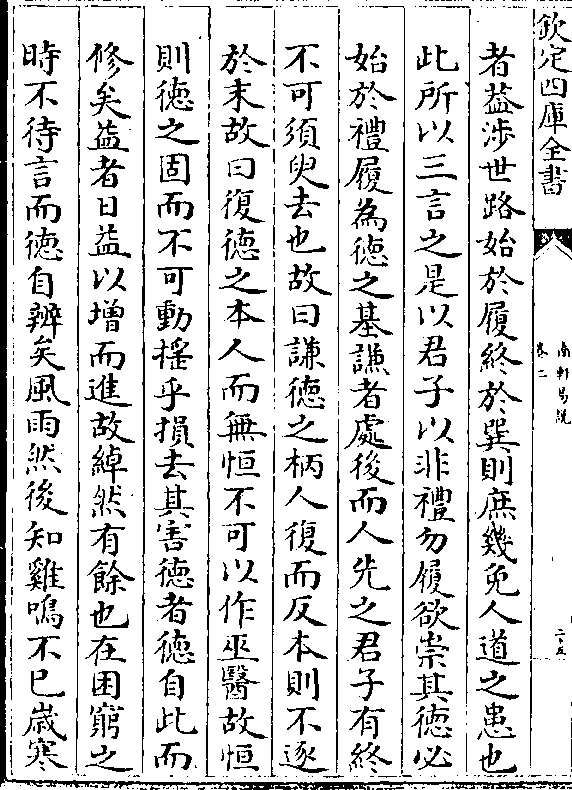 欽定四庫全書
南軒易說
卷二
二十五
者葢涉世路始於履終於巽則庶幾免人道之患也
此所以三言之是以君子以非禮勿履欲崇其德必
始於禮履為德之基謙者處後而人先之君子有終
不可須臾去也故曰謙德之柄人復而反本則不逐
於末故曰復德之本人而無恒不可以作巫醫故恒
則德之固而不可動搖乎損去其害德者德自此而
修矣益者日益以增而進故綽然有餘也在困窮之
時不待言而德自辨矣風雨然後知雞鳴不已歲寒